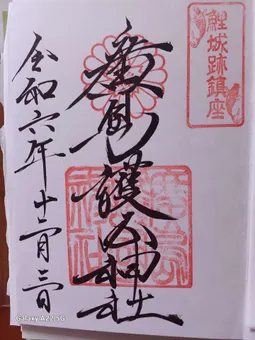 鯉城跡鎮座
廣島護国神社
令和六年十二月三日
Galaxy A22 5G